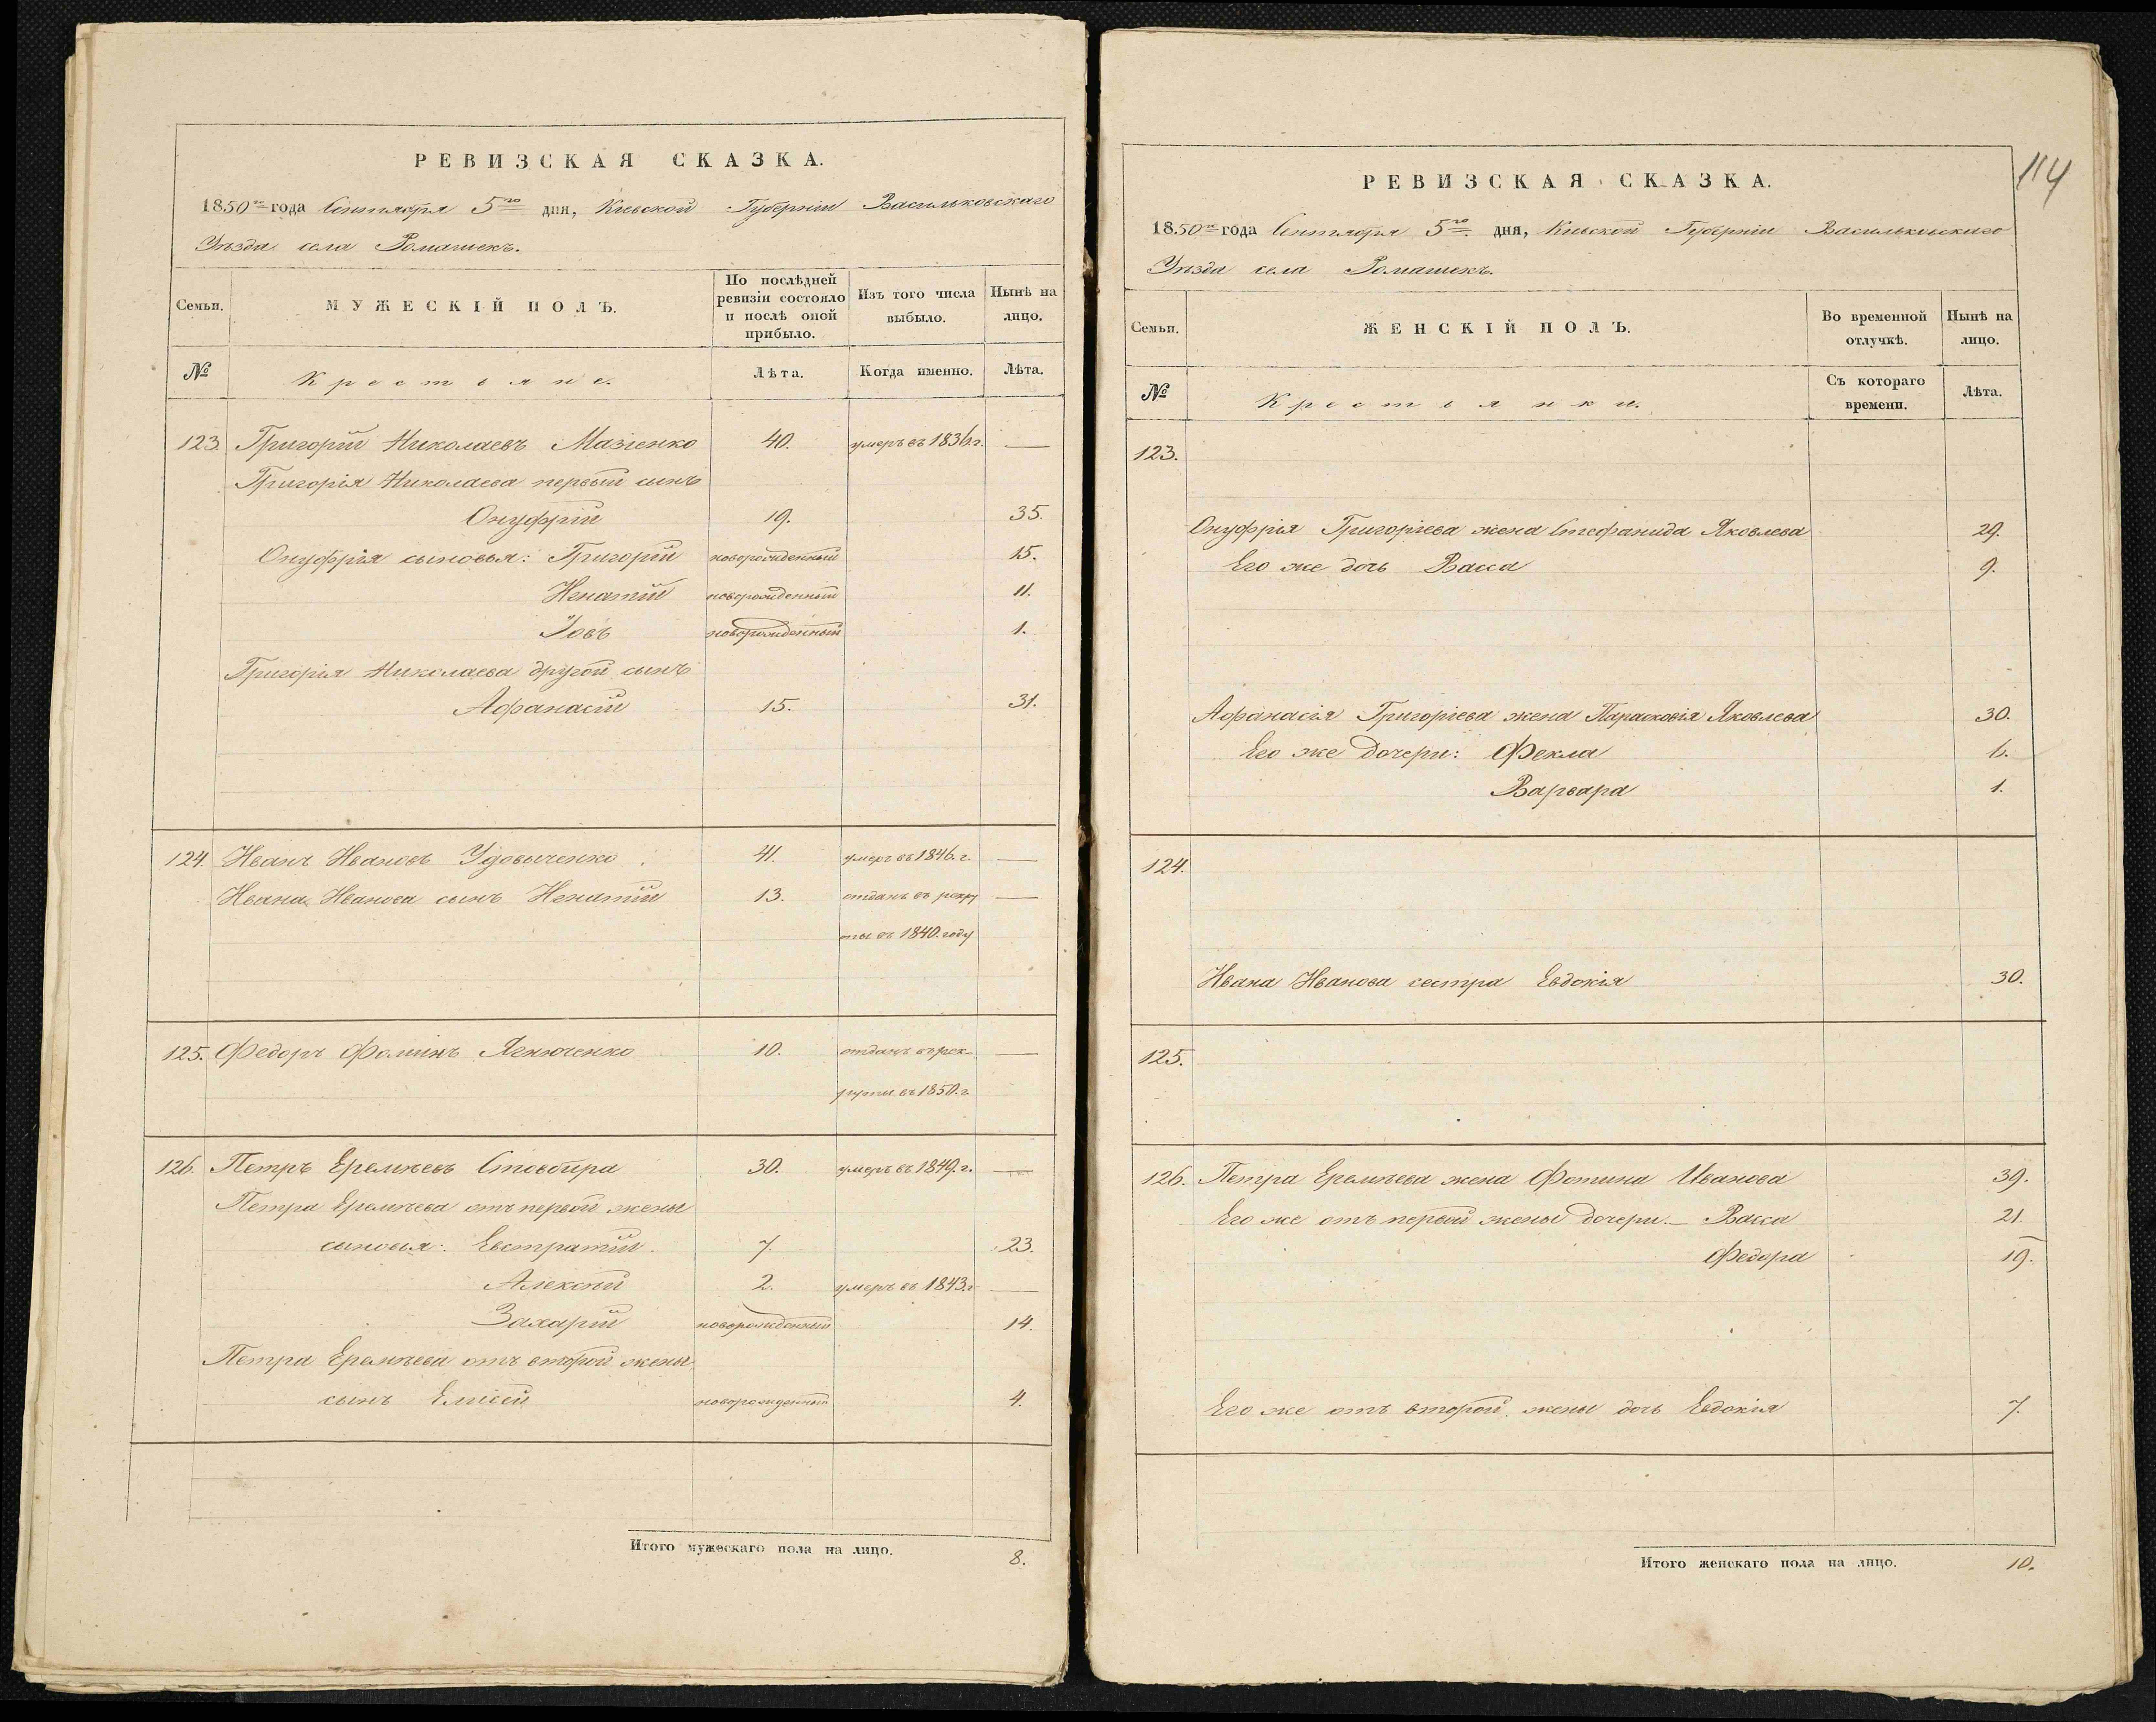 РЕВИЗСКАЯ СКАЗКА.
1850го года Сентября 5го дня, Киевской Губерніи Васильковскаго
Уѣзда села Ромашекъ.
Семьи.
МУЖЕСКІЙ ПОЛЪ.
По послѣдней ревизіи состояло и послѣ оной прибыло.
Изъ того числа выбыло.
Нынѣ на лицо.
№
Крестьяне.
Лѣта.
Когда именно.
Лѣта.
123. Григорій Николаевъ Мазіенко 40. умеръ въ 1836.г. —
Григорія Николаева первый сынъ
Онуфрій 19. 35.
Онуфрія сыновья: Григорій новорожденный 15.
Игнатій новорожденный 11.
Іовъ новорожденный 1.
Григорія Николаева другой сынъ
Афанасій 15. 31.
124. Иванъ Ивановъ Удовыченко 41. умеръ въ 1846.г. —
Ивана Иванова сынъ Игнатій 13. отданъ въ рекру —
ты въ 1840.году
125. Федоръ Фоминъ Ягнюченко 10. отданъ въ рек- —
руты въ 1850.г.
126. Петръ Еремѣевъ Стовбира 30. умеръ въ 1849.г. —
Петра Еремѣева отъ первой жены
сыновья: Евстратій 7. 23.
Алексѣй 2. умеръ въ 1843.г —
Захарій новорожденный 14.
Петра Еремѣева отъ второй жены
сынъ Елисей новорожденный 4.
Итого мужескаго пола на лицо. 8.
114
РЕВИЗСКАЯ СКАЗКА.
1850го года Сентября 5го дня, Киевской Губерніи Васильковскаго
Уѣзда села Ромашекъ.
Семьи.
ЖЕНСКІЙ ПОЛЪ.
Во временной отлучкѣ.
Нынѣ на лицо.
№
Крестьянки.
Съ котораго времени.
Лѣта.
123.
Онуфрія Григоріева жена Стефанида Яковлева 29.
Его же дочь Васса 9.
Афанасія Григоріева жена Парасковія Яковлева 30.
Его же дочери: Фекла 6.
Варвара 1.
124.
Ивана Иванова сестра Евдокія 30.
125.
126. Петра Еремѣева жена Фотина Иванова 39.
Его же отъ первой жены дочери.— Васса 21.
Федора 19.
Его же отъ второй жены дочь Евдокія 7.
Итого женскаго пола на лицо. 10.